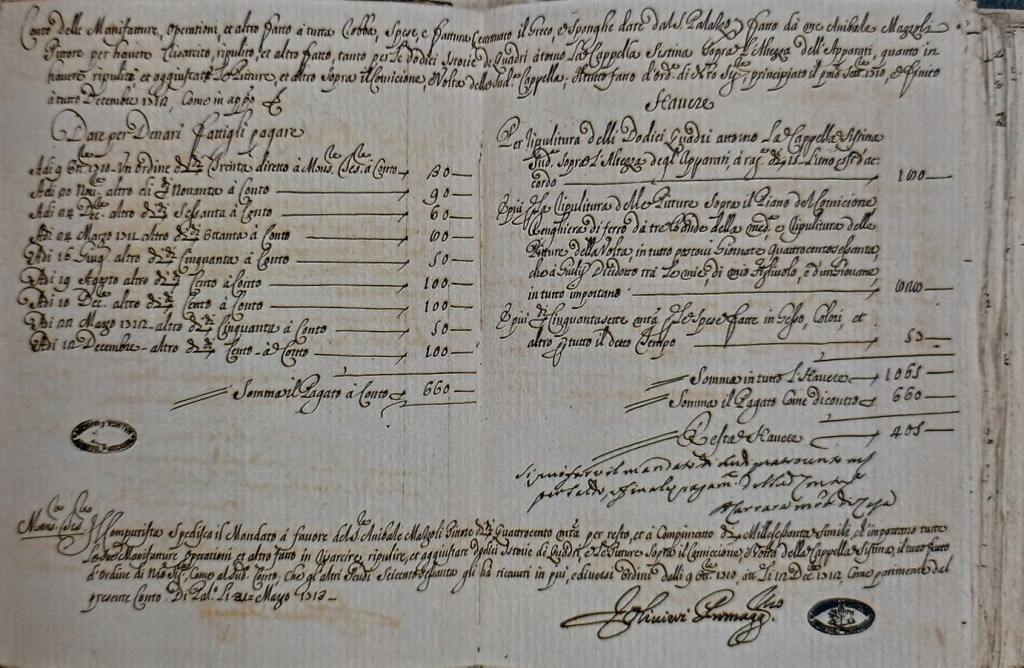 Conto delle Manifatture, Operationi, et altro fatto à tutta Robba, Spese, e fattura, eccettuato il Greco, e Sponghe dare dal S. Palazzo, fatto da me Anibale Mazzoli
Pittore per havere risarcito, ripulito, et altro fatto, tanto per le Dodici Istorie di Quadri atorno La Cappella Sistina Sopra L'Altezza dell'Apparati, quanto in
havere ripulite et aggiustate le Pitture, et altro Sopra il Cornicione, e Volta della Sud.a Cappella; il tutto fatto d'ord.e di N'ro Sig.re, principiato il pmo Sett.re 1710, e finito
à tutto Decembre 1712, Come in app.o
Dare per Denari fattigli pagare
Adi 9 8bre 1710 Un ordine di Trenta diretto à Mons. à Conto 30
Adi 20 Nov.re altro di Novanta à Conto 90
Adi 24 Dec.re altro di Sessanta à Conto 60
Adi 24 Marzo 1711 Altro di Ottanta à Conto 80
Adi 16 Giug.o altro di Cinquanta à Conto 50
Adi 19 Agosto altro di Cento à Conto 100
Adi 10 Dec.re altro di Cento à Conto 100
Adi 22 Marzo 1712 altro di Cinquanta à Conto 50
Adi 12 Decembre altro di Cento à Conto 100
Somma il Pagato à Conto 660
Havere
Per ripulitura delli Dodici Quadri attorno La Cappella Sistina
Sud.a Sopra L'Altezza degl'Apparati, à rag.e di 15 L'uno così d'ac
cordo
E più p la ripulitura delle Pitture Sopra il Piano del Cornicione
Renghiera di ferro da tre bande della med.a, e ripulitura delle
Pitture della Volta in tutto per ovi Giornate Quattrocento sessanta,
che à Giulij Dicidotto trà le mie, di mio Figlivolo, e d'un Giovane
in tutto importano
E più Cinquantasette m.ta p le Spese fatte in Gesso, Colori, et
altro p tutto il detto Tempo
Somma in tutto L'Havere 1065
Somma il Pagato Come dicontro 660
Resta d'Havere 405
Si può fare il mandato di scudi quattrocento m.ta
per saldo, e final pagam.to
Computista Spedisca il Mandato à favore del S. Anibale Mazzoli Pittore di Quattrocento m.ta per resto, et à Compimento di Mille sessanta Simili, ch'importano tutte
le Manifatture Operationi et altro fatto in risarcire, ripulire, et aggiustare dodici Istorie di Quadri, e le Pitture Sopra il Cornicione, e Volta della Cappella Sistina, il tutto fatto
d'ordine di N'ro Sig.re, Come al Sud.o Conto, che gl'altri Scudi Seicento sessanta gli hà ricevuti in più, e diversi Ordini dalli 9 8bre 1710, à tt.o Li 12 Dec.re 1712 Come parimente dal
presente Conto. Di Pal.o Li 21 Marzo 1713